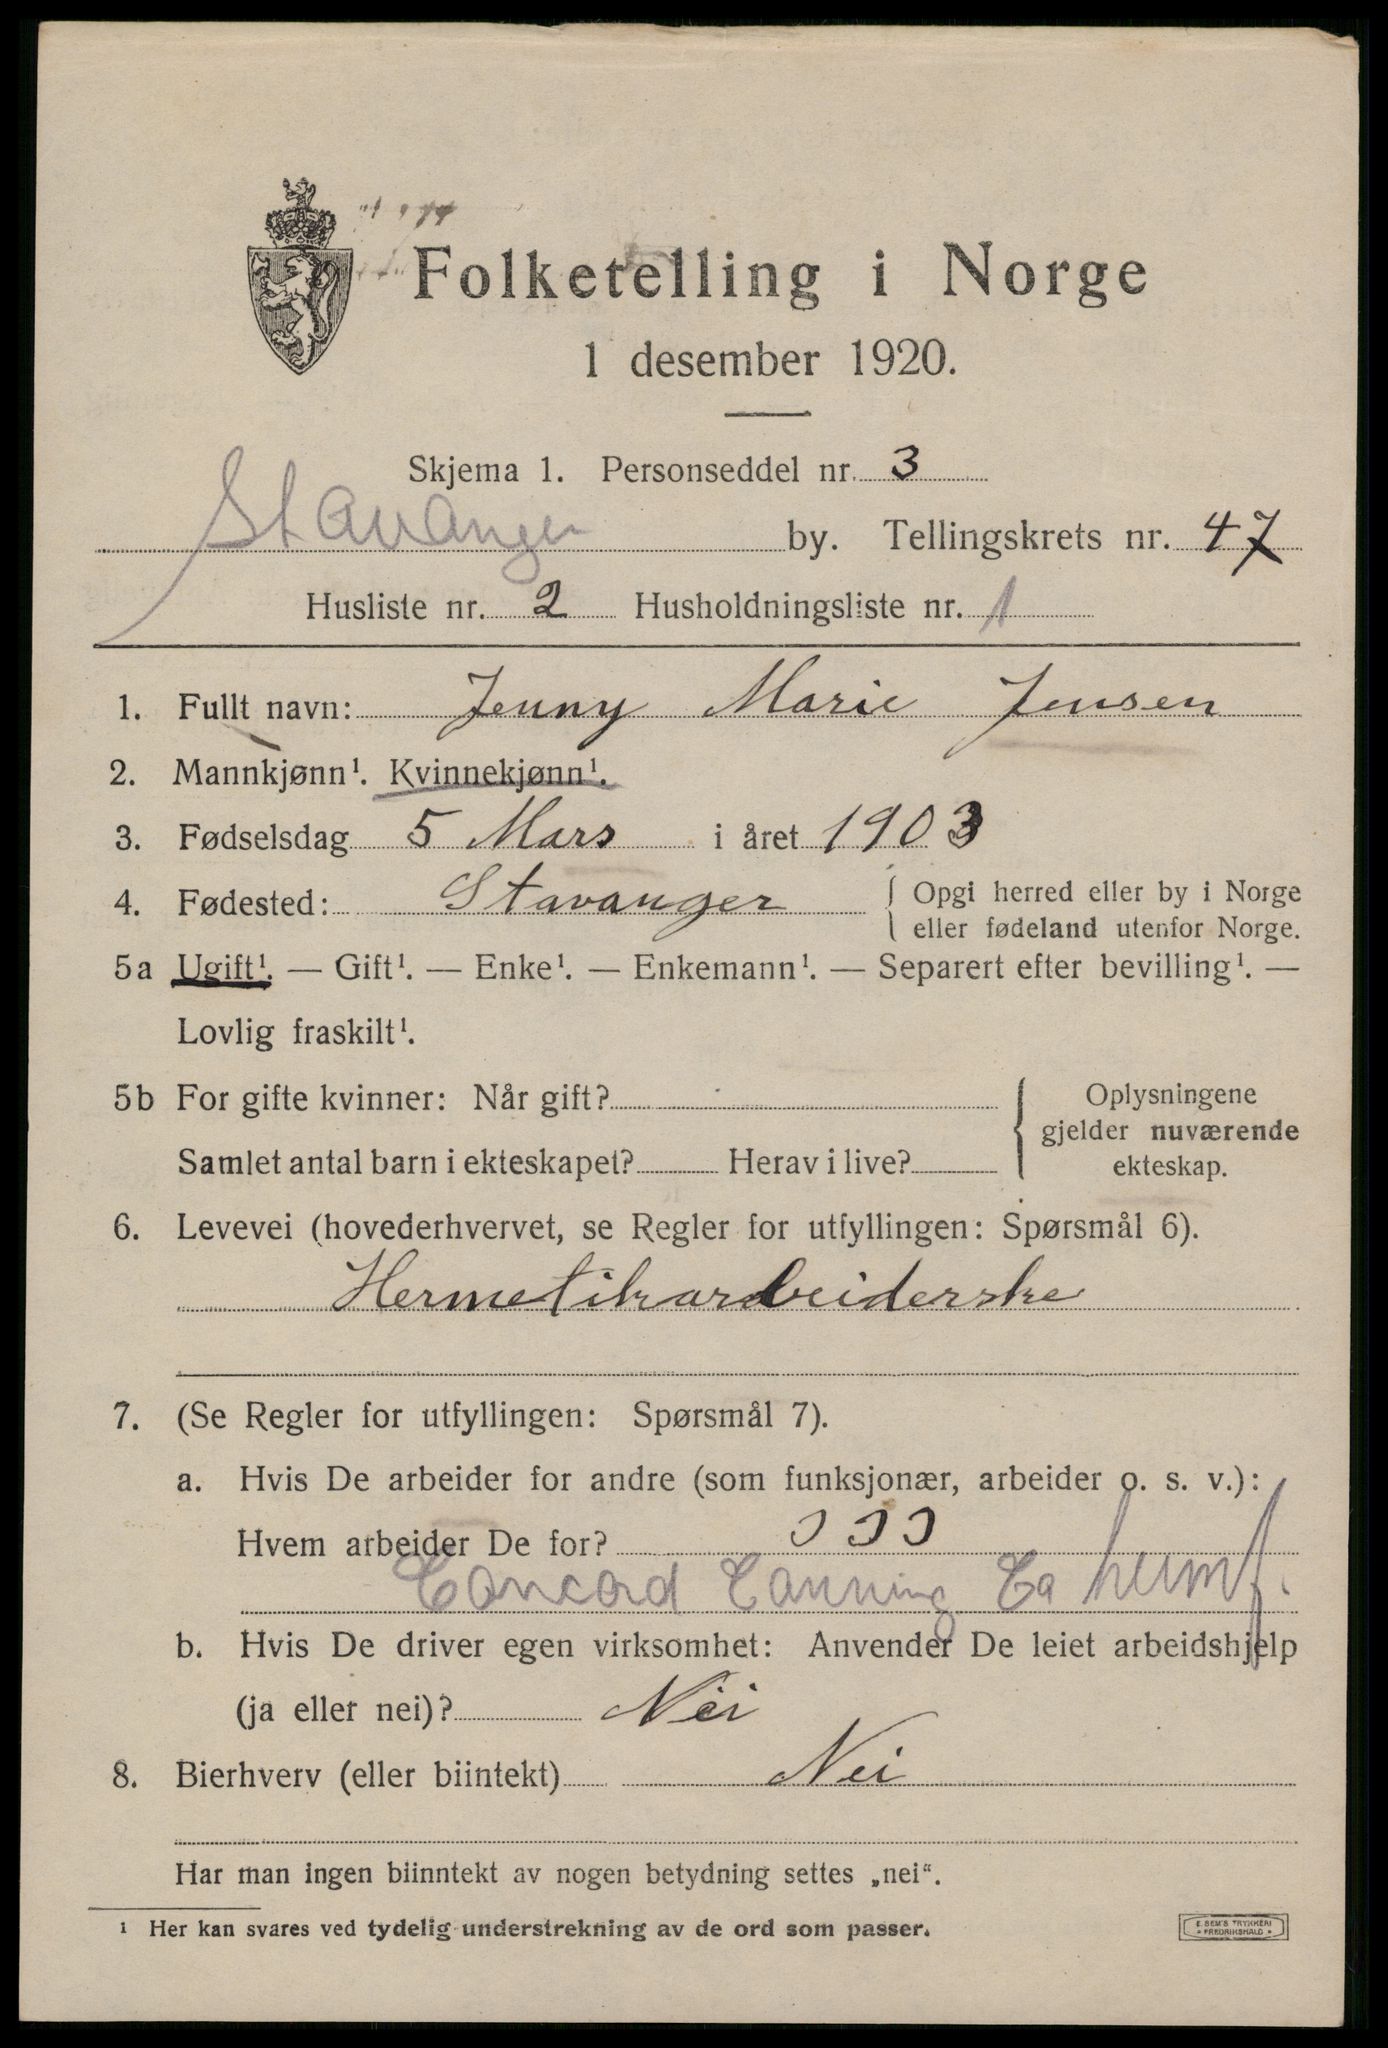 Folketelling i Norge
1 desember 1920.
Skjema 1. Personseddel nr. 3
Stavanger by. Tellingskrets nr. 47
Husliste nr. 2 Husholdningsliste nr. 1
1. Fullt navn: Jenny Marie Jensen
2. Mannkjønn¹. Kvinnekjønn¹.
3. Fødselsdag 5 Mars i året 1903
4. Fødested: Stavanger { Opgi herred eller by i Norge
eller fødeland utenfor Norge.
5a Ugift¹. — Gift¹. — Enke¹. — Enkemann¹. — Separert efter bevilling¹. —
Lovlig fraskilt¹.
5b For gifte kvinner: Når gift?
Samlet antal barn i ekteskapet? Herav i live?
Oplysningene
gjelder nuværende
ekteskap.
6. Levevei (hovederhvervet, se Regler for utfyllingen: Spørsmål 6).
Hermetikarbeiderske
7. (Se Regler for utfyllingen: Spørsmål 7).
a. Hvis De arbeider for andre (som funksjonær, arbeider o. s. v.):
Hvem arbeider De for?
Concord Canning Co
b. Hvis De driver egen virksomhet: Anvender De leiet arbeidshjelp
(ja eller nei)? Nei
8. Bierhverv (eller biintekt) Nei
Har man ingen biinntekt av nogen betydning settes „nei“.
¹ Her kan svares ved tydelig understrekning av de ord som passer.
E. SEM'S TRYKKERI
FREDRIKSHALD